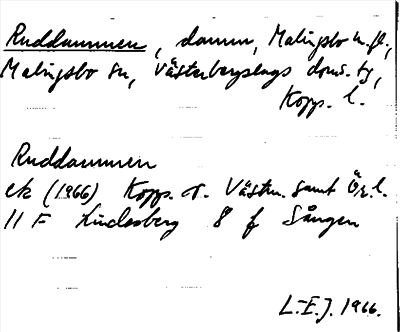 Ruddammen, damm, Malingsbo h.fl.,
Malingsbo sn, Västerbergslags doms. tg,
Kopp. l.
Ruddammen
ek (1966) Kopp. o. Västm. samt Ör. l.
11 F Lindesberg 8 f Sången
L-E.J. 1966.